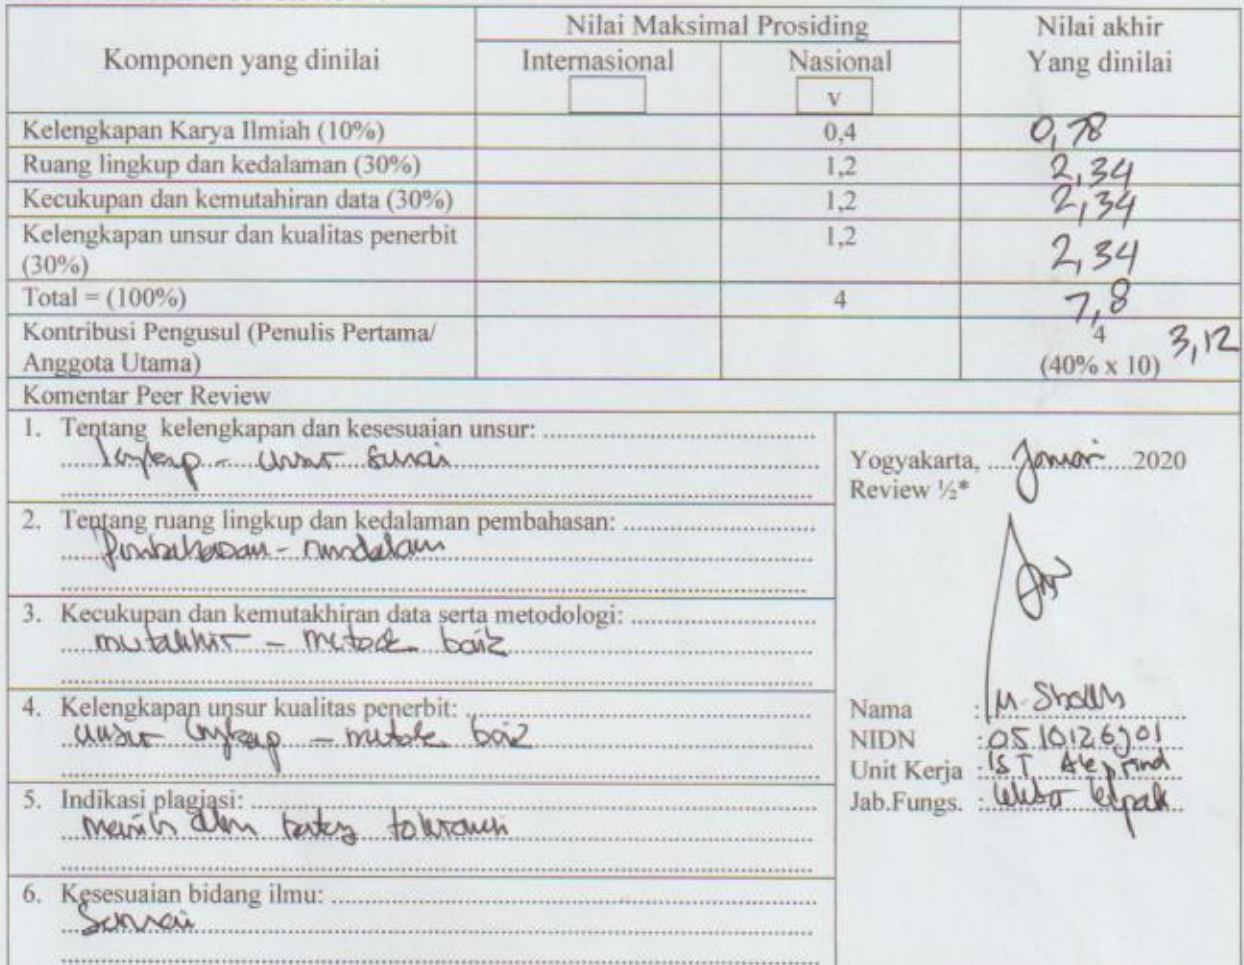 Komponen yang dinilai
Nilai Maksimal Prosiding
Nilai akhir
Yang dinilai
Internasional
Nasional
v
Kelengkapan Karya Ilmiah (10%) 0,4 0,78
Ruang lingkup dan kedalaman (30%) 1,2 2,34
Kecukupan dan kemutahiran data (30%) 1,2 2,34
Kelengkapan unsur dan kualitas penerbit 1,2 2,34
(30%)
Total = (100%) 4 7,8
Kontribusi Pengusul (Penulis Pertama/ 4 3,12
Anggota Utama) (40% x 10)
Komentar Peer Review
1. Tentang kelengkapan dan kesesuaian unsur:
lengkap - unsur sesuai
2. Tentang ruang lingkup dan kedalaman pembahasan:
Pembahasan - mendalam
3. Kecukupan dan kemutakhiran data serta metodologi:
mutakhir - metode baik
4. Kelengkapan unsur kualitas penerbit:
unsur lengkap - metode baik
5. Indikasi plagiasi:
masih dlm batas toleransi
6. Kesesuaian bidang ilmu:
Sesuai
Yogyakarta, Januari 2020
Review ½*
Nama : M. Sholeh
NIDN :
Unit Kerja : IST Akprind
Jab.Fungs. : Lektor kepala